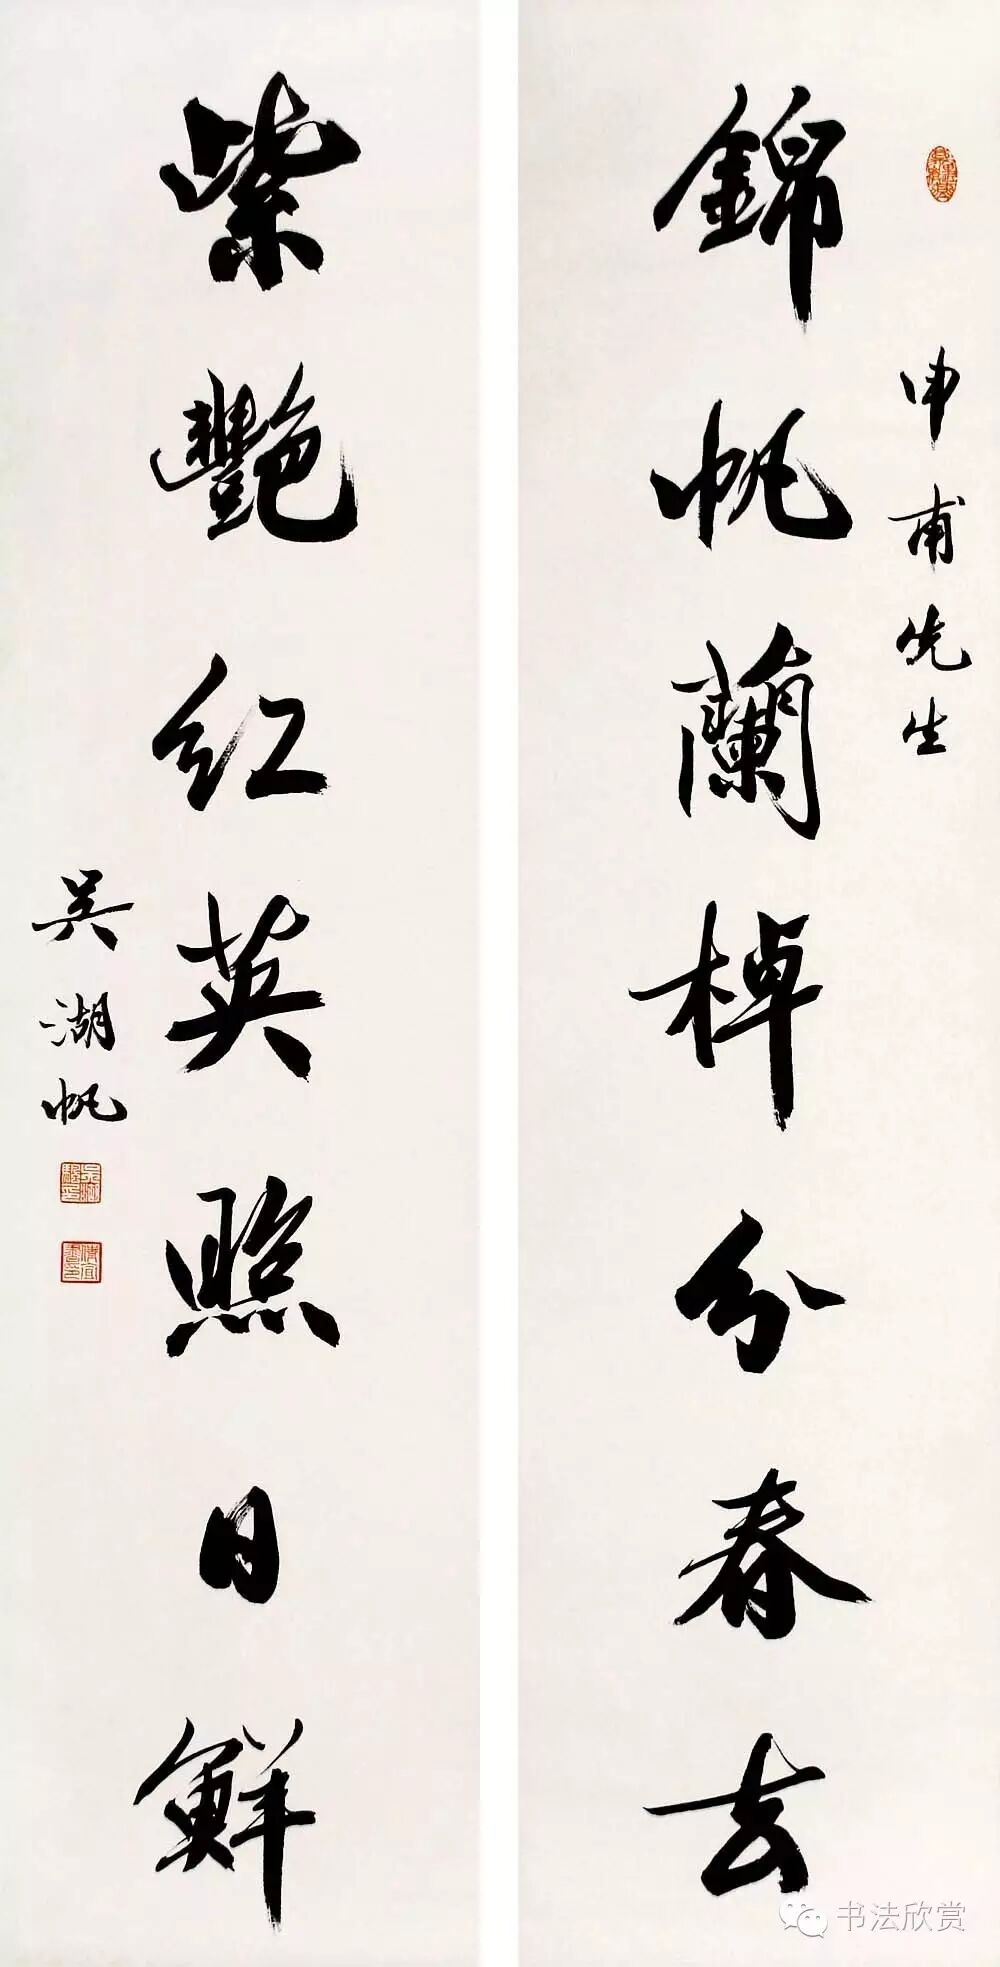 申甫先生
錦帆蘭棹分春去
紫艷红英照日鮮
吴湖帆
书法欣赏